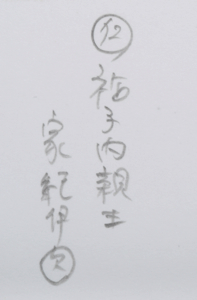 ㊷ 祐子内親王
家紀伊 欠